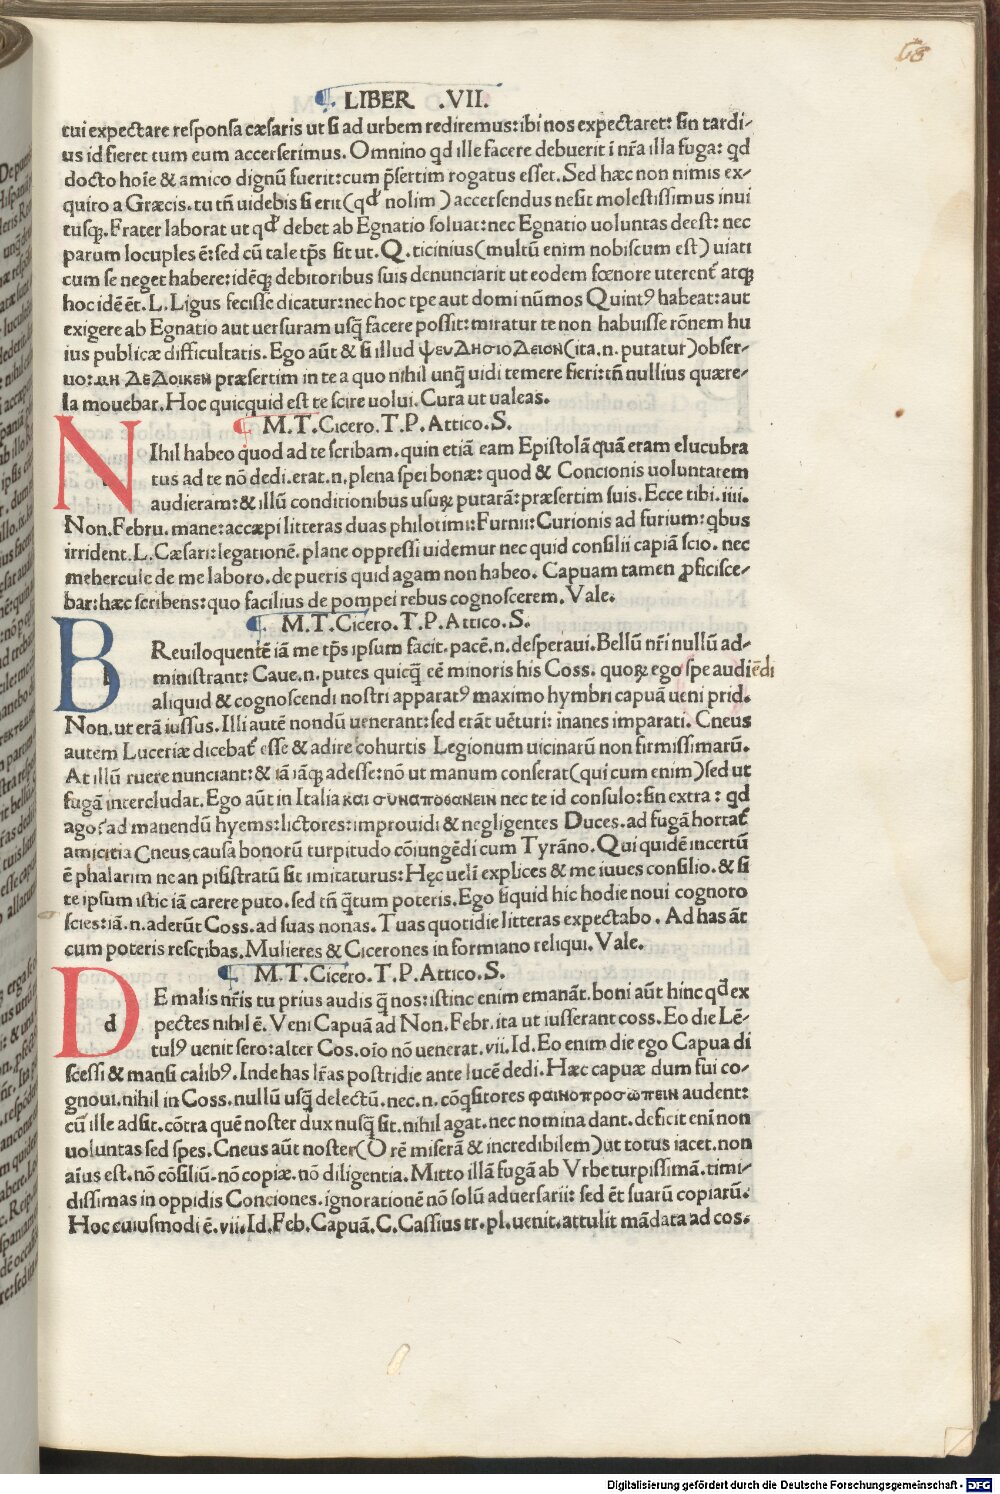 68
¶. LIBER .VII.
tui expectare responsa cæsaris ut si ad urbem rediremus: ibi nos expectaret: sin tardi-
us id fieret tum eum accerserimus. Omnino qd ille facere debuerit ī nr̄a illa fuga: qd
docto hoīe & amico dignū fuerit: cum p̄sertim rogatus esset. Sed hæc non nimis ex-
quiro a Græcis. tu tn̄ uidebis si erit (qđ nolim) accersendus nesit molestissimus inui
tusqꝫ. Frater laborat ut qđ debet ab Egnatio soluat: nec Egnatio uoluntas deest: nec
parum locuples ē: sed cū tale tp̄s sit ut. Q. ticinius (multū enim nobiscum est) uiati
cum se neget habere: idēqꝫ debitoribus suis denunciarit ut eodem fœnore uterent̄ atqꝫ
hoc idē ēt. L. Ligus fecisse dicatur: nec hoc tpe aut domi nūmos Quintꝰ habeat: aut
exigere ab Egnatio aut uersuram usq̄ facere possit: miratur te non habuisse rōnem hu
ius publicæ difficultatis. Ego aūt & si illud ψευΔησιοΔειον (ita. n. putatur) obser-
uo: μη ΔεΔοικεν præsertim in te a quo nihil unq̄ uidi temere fieri: tn̄ nullius quære-
la mouebar. Hoc quicquid est te scire uolui. Cura ut ualeas.
¶ M. T. Cicero. T. P. Attico. S.
NIhil habeo quod ad te scribam. quin etiā eam Epistolā quā eram elucubra
tus ad te nō dedi. erat. n. plena spei bonæ: quod & Concionis uoluntatem
audieram: & illū conditionibus usuꝝ putarā: præsertim suis. Ecce tibi. iiii.
Non. Febru. mane: accæpi litteras duas philotimi: Furnii: Curionis ad furium: qbus
irrident. L. Cæsari: legationē. plane oppressi uidemur nec quid consilii capiā scio. nec
mehercule de me laboro. de pueris quid agam non habeo. Capuam tamen ꝓficisce-
bar: hæc scribens: quo facilius de pompei rebus cognoscerem. Vale.
¶ M. T. Cicero. T. P. Attico. S.
BReuiloquentē iā me tp̄s ipsum facit. pacē. n. desperaui. Bellū nr̄i nullū ad-
ministrant: Caue. n. putes quicq̄ eē minoris his Coss. quoꝝ ego spe audiēdi
aliquid & cognoscendi nostri apparatꝰ maximo hymbri capuā ueni prid.
Non. ut erā iussus. Illi autē nondū uenerant: sed erāt uēturi: inanes imparati. Cneus
autem Luceriæ dicebat̄ esse & adire cohurtis Legionum uicinarū non firmissimarū.
At illū ruere nunciant: & iā iāqꝫ adesse: nō ut manum conserat (qui cum enim) sed ut
fugā intercludat. Ego aūt in Italia και συναποθανειν nec te id consulo: sin extra: qd
ago? ad manendū hyems: lictores: improuidi & negligentes Duces. ad fugā hortat̄
amicitia Cneus causa bonorū turpitudo cōiungēdi cum Tyrāno. Qui quidē incertū
ē phalarim ne an pisistratū sit imitaturus: Hęc uelī explices & me iuues consilio. & si
te ipsum istic iā carere puto. sed tn̄ q̄tum poteris. Ego siquid hic hodie noui cognoro
scies: iā. n. aderūt Coss. ad suas nonas. Tuas quotidie litteras expectabo. Ad has āt
cum poteris rescribas. Mulieres & Cicerones in formiano reliqui. Vale.
¶ M. T. Cicero. T. P. Attico. S.
DE malis nr̄is tu prius audis q̄ nos: istinc enim emanāt. boni aūt hinc qđ ex
pectes nihil ē. Veni Capuā ad Non. Febr. ita ut iusserant coss. Eo die Lē-
tulꝰ uenit sero: alter Cos. oīo nō uenerat. vii. Id. Eo enim die ego Capua di
scessi & mansi calibꝰ. Inde has lr̄as postridie ante lucē dedi. Hæc capuæ dum fui co-
gnoui. nihil in Coss. nullū usq̄ delectū. nec. n. cōqsitores φαινοπροσωπειν audent:
cū ille adsit. cōtra quē noster dux nusq̄ sit. nihil agat. nec nomina dant. deficit eni non
uoluntas sed spes. Cneus aūt noster (O rē miserā & incredibilem) ut totus iacet. non
aīus est. nō cōsiliū. nō copiæ. nō diligentia. Mitto illā fugā ab Vrbe turpissimā. timi-
dissimas in oppidis Conciones. ignorationē nō solū aduersarii: sed ēt suarū copiarū.
Hoc cuiusmodi ē. vii. Id. Feb. Capuā. C. Cassius tr. pl. uenit. attulit mādata ad cos.
Digitalisierung gefördert durch die Deutsche Forschungsgemeinschaft - DFG